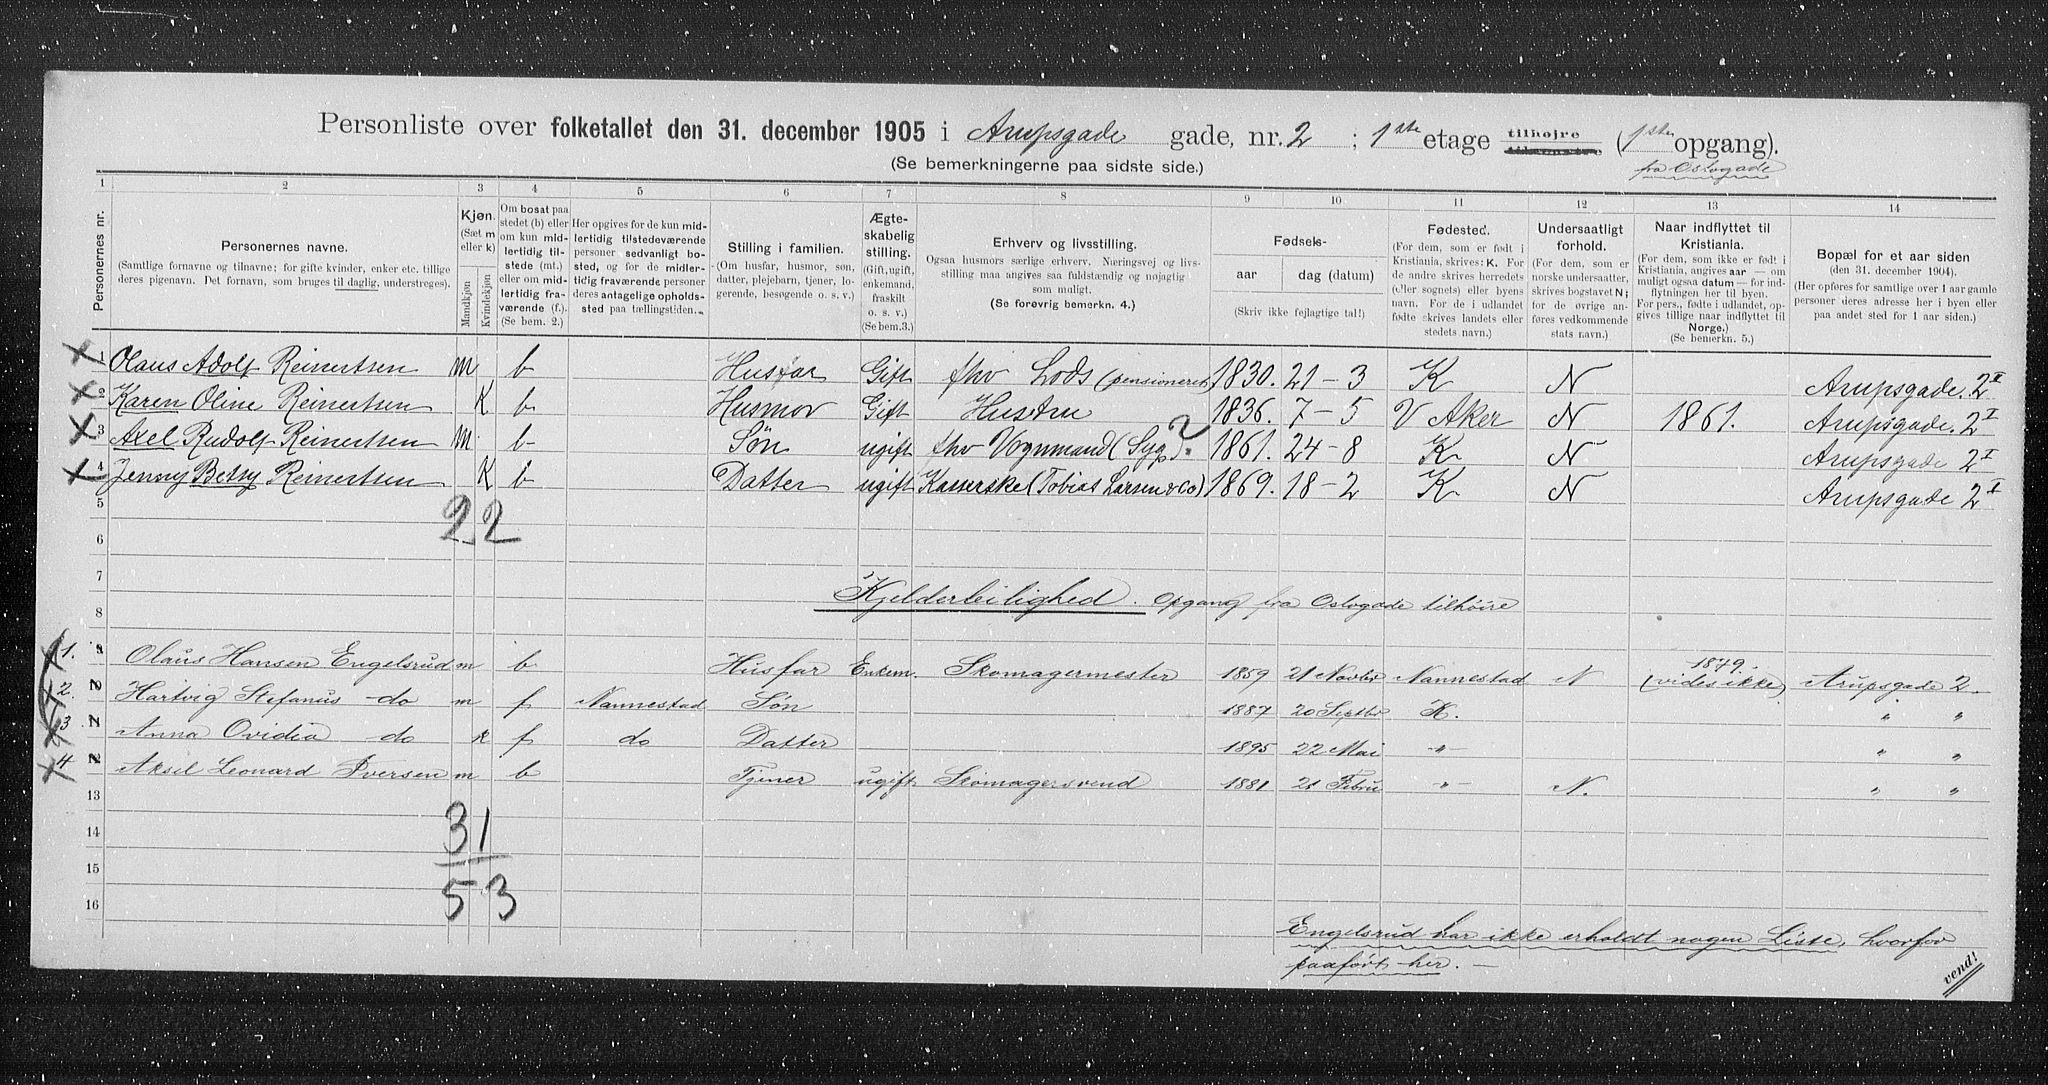 Personliste over folketallet den 31. december 1905 i Arupsgade gade, nr. 2 ; 1ste etage tilhøjre (1ste opgang).
(Se bemerkningerne paa sidste side.) fra Oslogade
1 2 3 4 5 6 7 8 9 10 11 12 13 14
Personernes nr.
Personernes navne.
(Samtlige fornavne og tilnavne; for gifte kvinder, enker etc. tillige
deres pigenavn. Det fornavn, som bruges til daglig, understreges).
Kjøn.
(Sæt m
eller k)
Mandkjøn
Kvindekjøn
Om bosat paa
stedet (b) eller
om kun mid-
lertidig til-
stede (mt.)
eller om mid-
lertidig fra-
værende (f.).
(Se bem. 2.)
Her opgives for de kun mid-
lertidig tilstedeværende
personer sedvanligt bo-
sted, og for de midler-
tidig fraværende personer
deres antagelige opholds-
sted paa tællingstiden.
Stilling i familien.
(Om husfar, husmor, søn,
datter, plejebarn, tjener, lo-
gerende, besøgende o. s. v.)
Ægte-
skabelig
stilling.
(Gift, ugift,
enkemand,
fraskilt
o. s. v.)
(Se bem.3.)
Erhverv og livsstilling.
Ogsaa husmors særlige erhverv. Næringsvej og livs-
stilling maa angives saa fuldstændig og nøjagtig
som muligt.
(Se forøvrig bemerkn. 4.)
Fødsels-
aar dag (datum)
(Skriv ikke fejlagtige tal!)
Fødested.
(For dem, som er født i
Kristiania, skrives: K. For
de andre skrives herredets
(eller sognets) eller byens
navn. For de i udlandet
fødte skrives landets eller
stedets navn.)
Undersaatligt
forhold.
(For dem, som er
norske undersaatter,
skrives bogstavet N;
for de øvrige an-
føres vedkommende
stats navn.)
Naar indflyttet til
Kristiania.
(For dem, som ikke er født i
Kristiania, angives aar — om
muligt ogsaa datum — for ind-
flytningen her til byen.
For pers., fødte i udlandet, op-
gives tillige naar indflyttet til
Norge.)
(Se bemerkn. 5.)
Bopæl for et aar siden
(den 31. december 1904).
(Her opføres for samtlige over 1 aar gamle
personer deres adresse her i byen eller
paa andet sted for 1 aar siden.)
1 Olaus Adolf Reinertsen m b Husfar Gift fhv Lods (pensioneret) 1830. 21-3 K N Arupsgade. 2 I
2 Karen Oline Reinertsen K b Husmor Gift Hustru 1836. 7-5 V Aker N 1861. Arupsgade. 2 I
3 Axel Rudolf Reinertsen m. b Søn ugift fhv Vognmand (Syg) ? 1861. 24-8 K N Arupsgade 2 I
4 Jenny Betsy Reinertsen K b Datter ugift Kasserske (Tobias Larsen & Co) 1869. 18-2 K N Arupsgade 2 I
5
2 2
6
7
Kjelderleilighed. Opgang fra Oslogade tilhöire
8
1. Olaus Hansen Engelsrud m b Husfar Enkem. Skomagermester 1859 21 Novbr Nannestad N 1879. (vides ikke) Arupsgade 2.
2. Hartvig Stefanus do m f Nannestad Sön 1887 20 Septbr K. " "
3 Anna Ovidia do k f do Datter 1895 22 Mai -"- " "
4 Aksel Leonard Iversen m b Tjener ugift Skomagersvend 1881 21 Febru -"- N. " "
13
31
14
15
53
16
Engelsrud har ikke erholdt nogen Liste, hvorfor
paaført her. —
vend!